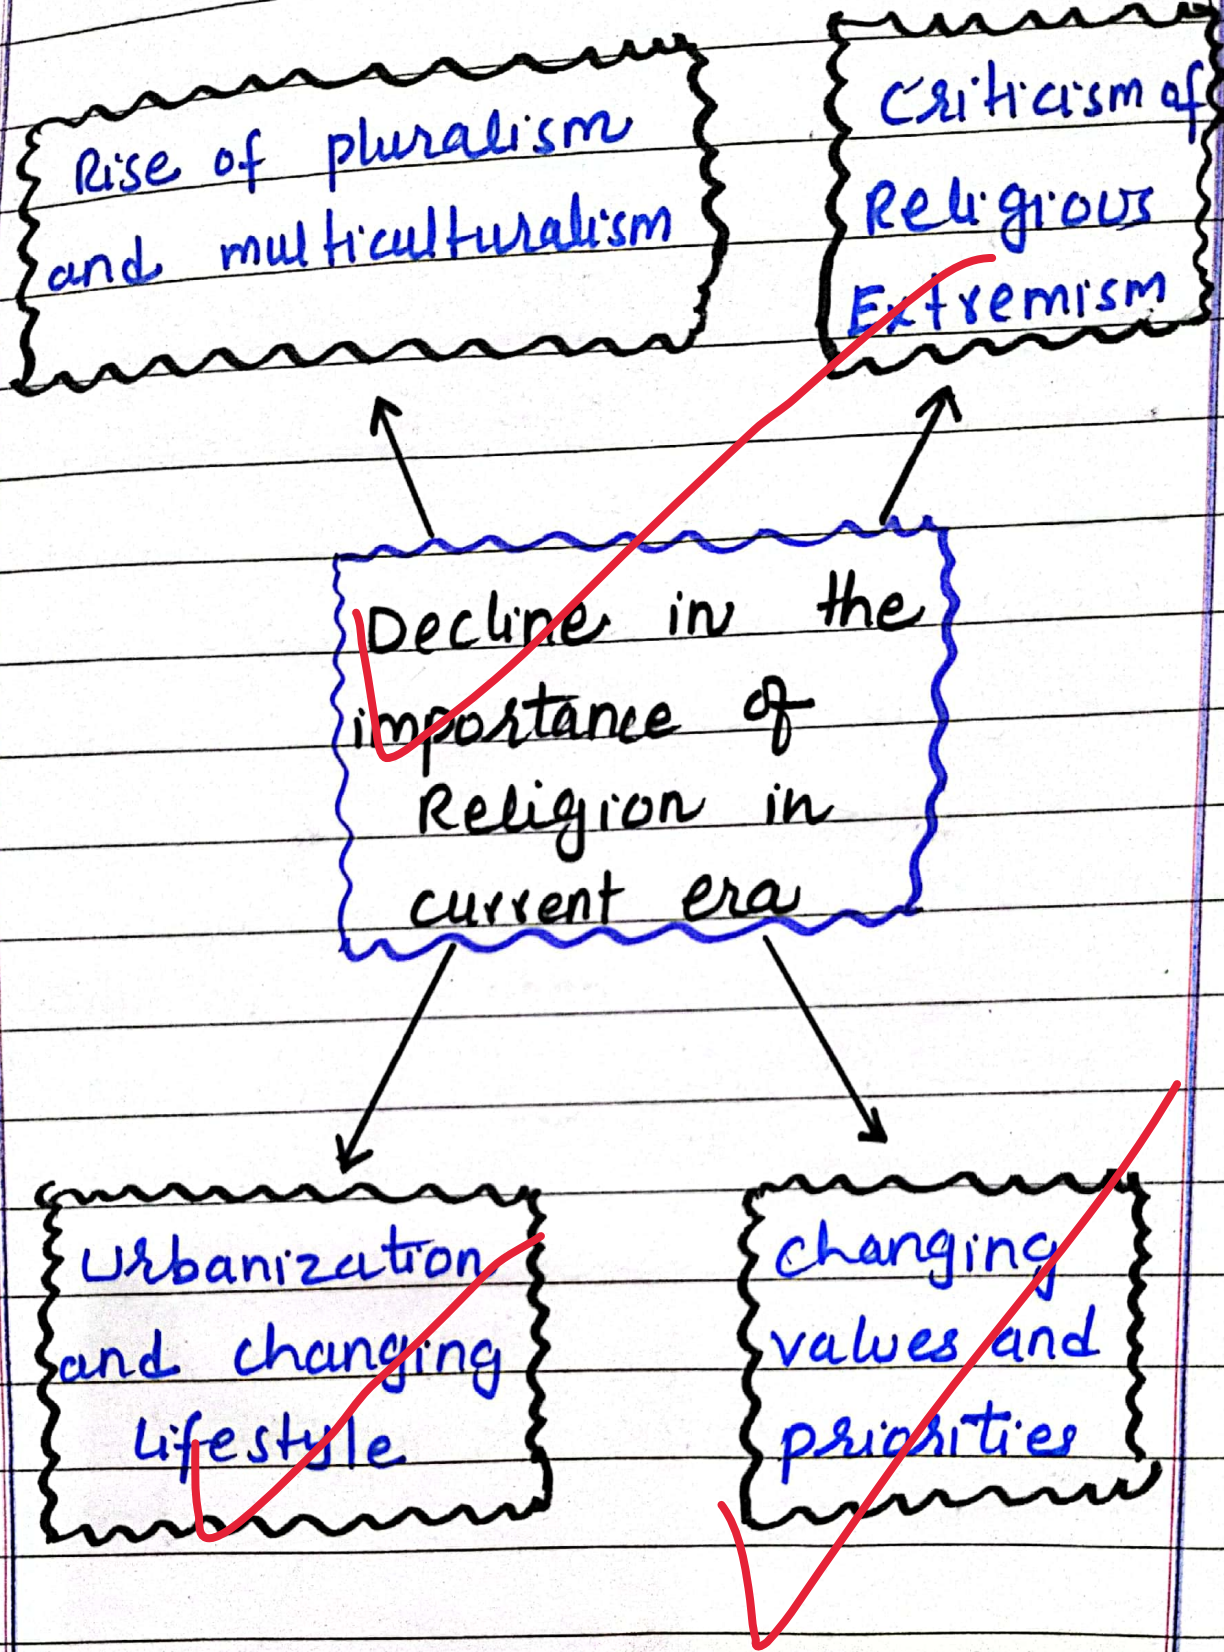 Rise of pluralism
and multiculturalism
Criticism of
Religious
Extremism
Decline in the
importance of
Religion in
current era
Urbanization
and changing
lifestyle
changing
values and
priorities